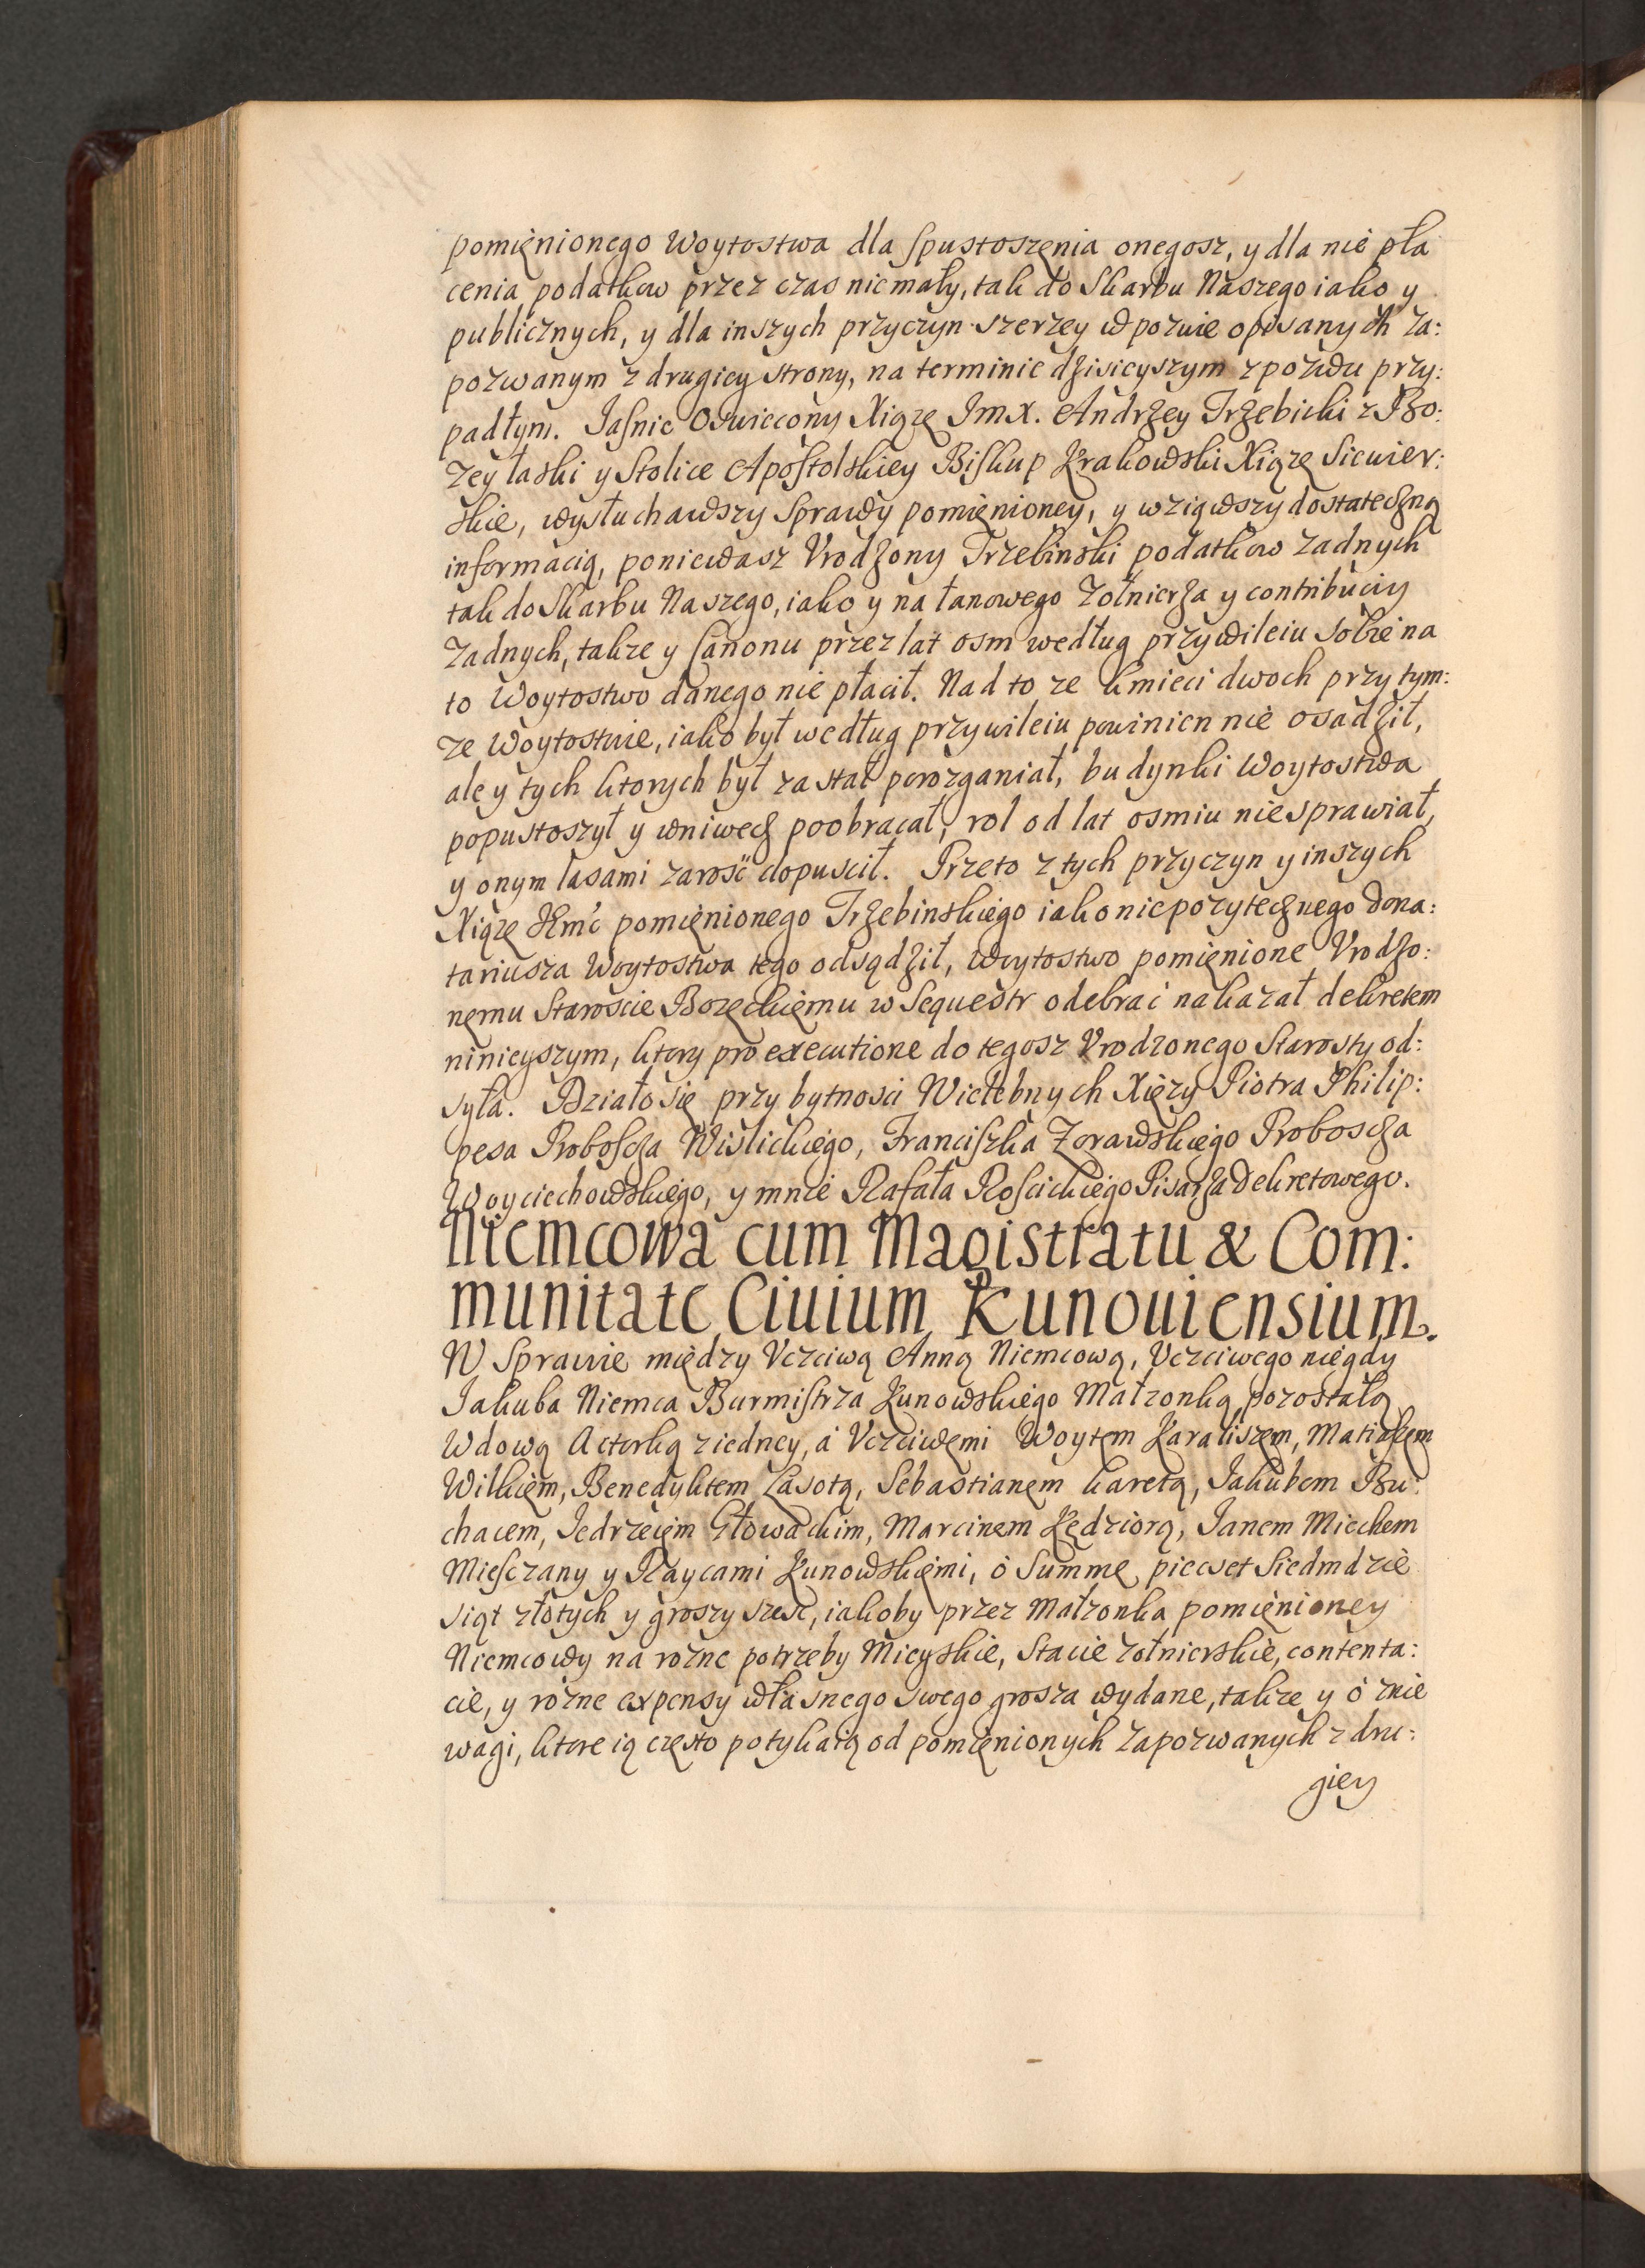 pomięnionego Woytostwa dla spustoszęnia onegosz, y dla nie pła
cenia podatkow przez czas niemały, tak do Skarbu Naszego iako y
publicznych, y dla inszych przyczyn szerzey w pozwie opisanych za:
pozwanym z drugiey strony, na terminie dzisieyszym z pozwu przy:
padłym. Jasnie Oswiecony Xiązę Jmx. Andrzey Trzebicki z Bo:
zey łaski y Stolice Apostolskiey Biskup Krakowski Xiązę Siewier:
skie, wysłuchawszy Sprawy pomięnioney, y wziąwszy dostateczną
informacią, poniewasz Vrodzony Trzebinski podatkow zadnych
tak do Skarbu Naszego, iako y na łanowego Zołnierza y contribuciy
zadnych, takze y Canonu przez lat osm według przywileiu sobie na
to Woytostwo danego nie płacił. Nad to ze kmieci dwoch przy tym:
ze Woytostwie, iako był według przywileiu powinien nie osadził,
ale y tych ktorych był zastał porozganiał, budynki Woytostwa
popustoszył y wniwecz poobracał, rol od lat osmiu nie sprawiał,
y onym lasami zarość dopuscił. Przeto z tych przyczyn y inszych
Xiąze Jkmć pomięnionego Trzebinskiego iako niepozytecznego Dona:
tariusza Woytostwa tego odsądził, Woytostwo pomięnione Vrodzo:
nemu Staroscie Bozęckięmu w Sequestr odebrać nakazał dekretem
ninieyszym, ktory pro executione do tegosz Vrodzonego Starosty od:
syła. Działo się przy bytnosci Wielebnych Xięzy Piotra Philip:
pesa Proboscza Wislickiego, Franciszka Zorawskiego Proboscza
Woyciechowskiego, y mnie Rafała Roscickiego Pisarza Dekretowego.
Niemcowa cum Magistratu & Com:
munitate Ciuium Kunouiensium.
W Sprawie między Vczciwą Anną Niemcową, Vczciwego niegdy
Jakuba Niemca Burmistrza Kunowskiego Małzonką, pozostałą
Wdową Actorką z iedney, á Vczciwęmi Woytęm Karaliszem, Matiaszem
Wilkięm, Benedyktem Lasotą, Sebastianem karetą, Jakubem Bu:
chacem, Jedrzeięm Głowackim, Marcinem Kędziorą, Janem Mieckem
Miesczany y Raycami Kunowskięmi, ó Summę piecset Siedmdzie
siąt złotych y groszy szesc, iakoby przez Małzonka pomięnioney
Niemcowy na rozne potrzeby Mieyskie, Stacie zołnierskie, contenta:
cie, y rózne expensy własnego swego grosza wydane, takze y ó znie
wagi, ktore ią często potykaią od pomięnionych Zapozwanych z dru:
giey